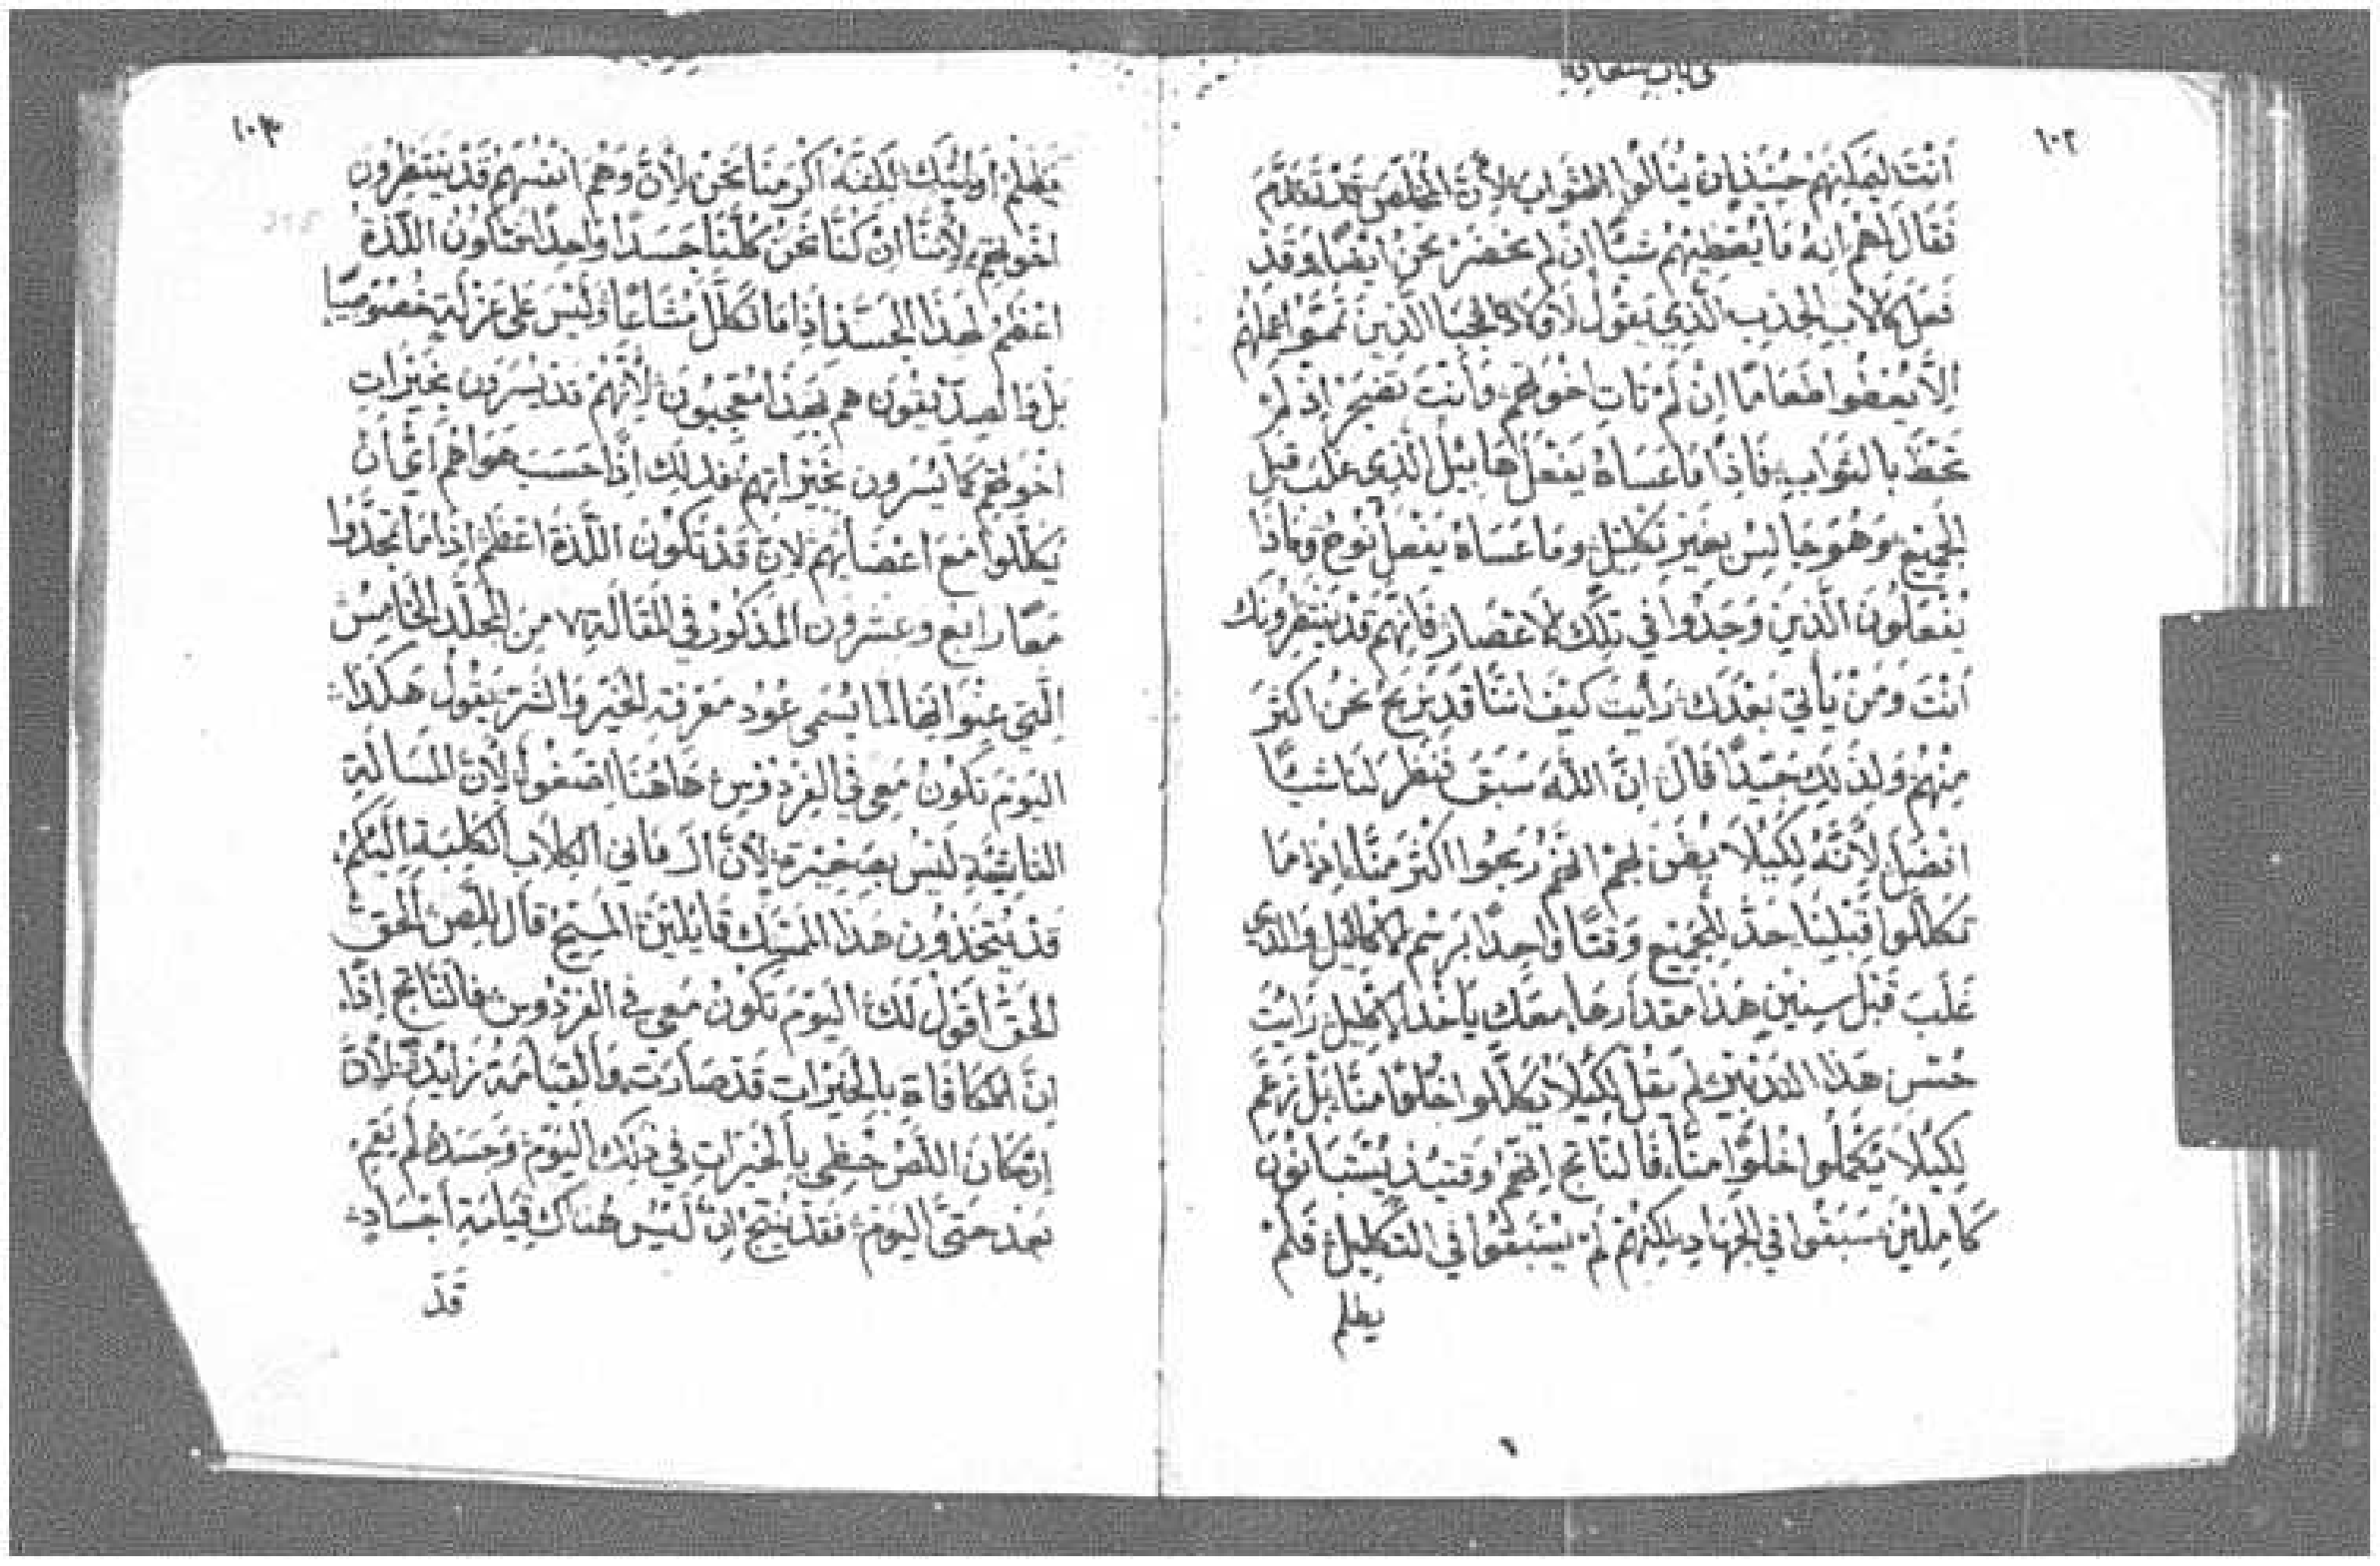 ١٠٢
أنتَ ليمكنهم حينئذٍ ان ينالوا الثواب لأنّ المخلص قد تقدّم
فقال لهم انه ما يعطيهم شيئًا ان لم نحضر نحن ايضًا وقد
فعل كالاب الذي يقول لاولاده الذين تمموا عملهم
الّا يعطوا طعامًا ان لم تأتِ اخوتهم وأنت تضجر إذ لم
تحظَ بالثواب فاذًا ما عساه يفعل هابيل الذي غلب قبل
الجميع وهو جالس بغير تكليل وما عساه يفعل نوح وماذا
يفعلون الذين وجدوا في تلك الاعصار فانهم قد ينتظرونك
انت ومن يأتي بعدك رأيت كيف اننا قد نربح نحن اكثر
منهم ولذلك جيّدًا قال انّ الله سبق فنظر لنا شيئًا
افضل لأنّه لكيلا يظن بهم انهم ربحوا اكثر منّا اذا ما
تكلّلوا قبلنا حدّ للجميع وقتًا واحدًا برسم الاكاليل والذي
غلب قبل سنين هذا مقدارها معك يأخذ الاكليل رأيت
حسن هذا التدبير لم يقل لكيلا يكلّلوا خلوًا منّا بل زعم
لكيلا يكملوا خلوًا منّا فالناتج انهم وقتئذٍ يستبانون
كاملين سبقوا في الجهاد لكنهم لم يسبقوا في التكليل فلم
يظلم
١٠٣
يظلم أوليئك لكنّه اكرمنا نحن لأنّ وهم انفسهم قد ينتظرون
اخوتهم لأننا ان كنّا نحن كلّنا جسدًا واحدًا تكون اللذة
اعظم لهذا الجسد اذا ما تكلّل مشاعًا وليس على عزلة خصوصيًا
بل والصدّيقون هم بهذا متعجبون لأنّهم قد يسرون بخيرات
اخوتهم كما يسرون بخيراتهم فذلك اذًا حسب هواهم اي أن
يكلّلوا مع اعضائهم لانّ قد تكون اللذة اعظم اذا ما تمجّدوا
معًا رابع وعشرون المذكور في المقالة ٧ من المجلّد الخامس
التي عنوانها لما يسمى عود معرفة الخير والشر يقول هكذا
اليوم تكون معي في الفردوس هاهنا اصغوا لأنّ المسألة
الناشية ليس بصغيرة لأنّ الـ ماني الكلاب الكلبة اليكم
قد يتخذون هذا المسك قايلين المسيح قال للّص الحق
الحق أقول لك اليوم تكون معي في الفردوس فالناتج اذًا
انّ المكافاة بالخيرات قد صارت والقيامة زايدة لأنّ
ان كان اللص حظي بالخيرات في ذلك اليوم وجسده لم يقم
بعد حتى اليوم فقد ينتج انّ ليس هناك قيامة اجساد
قد